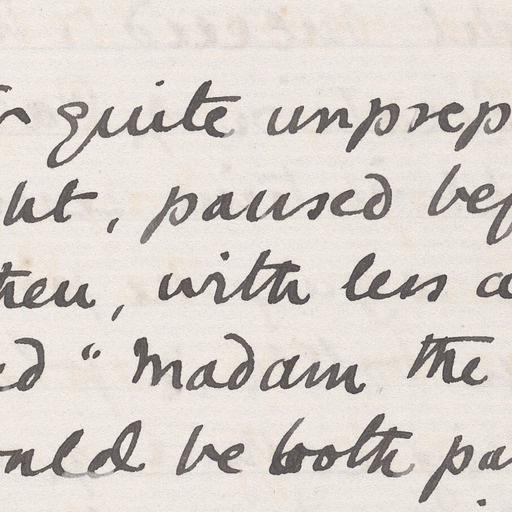 quite unprep
ht, paused bef
then, with less c
ed "Madam the
ould be both pa